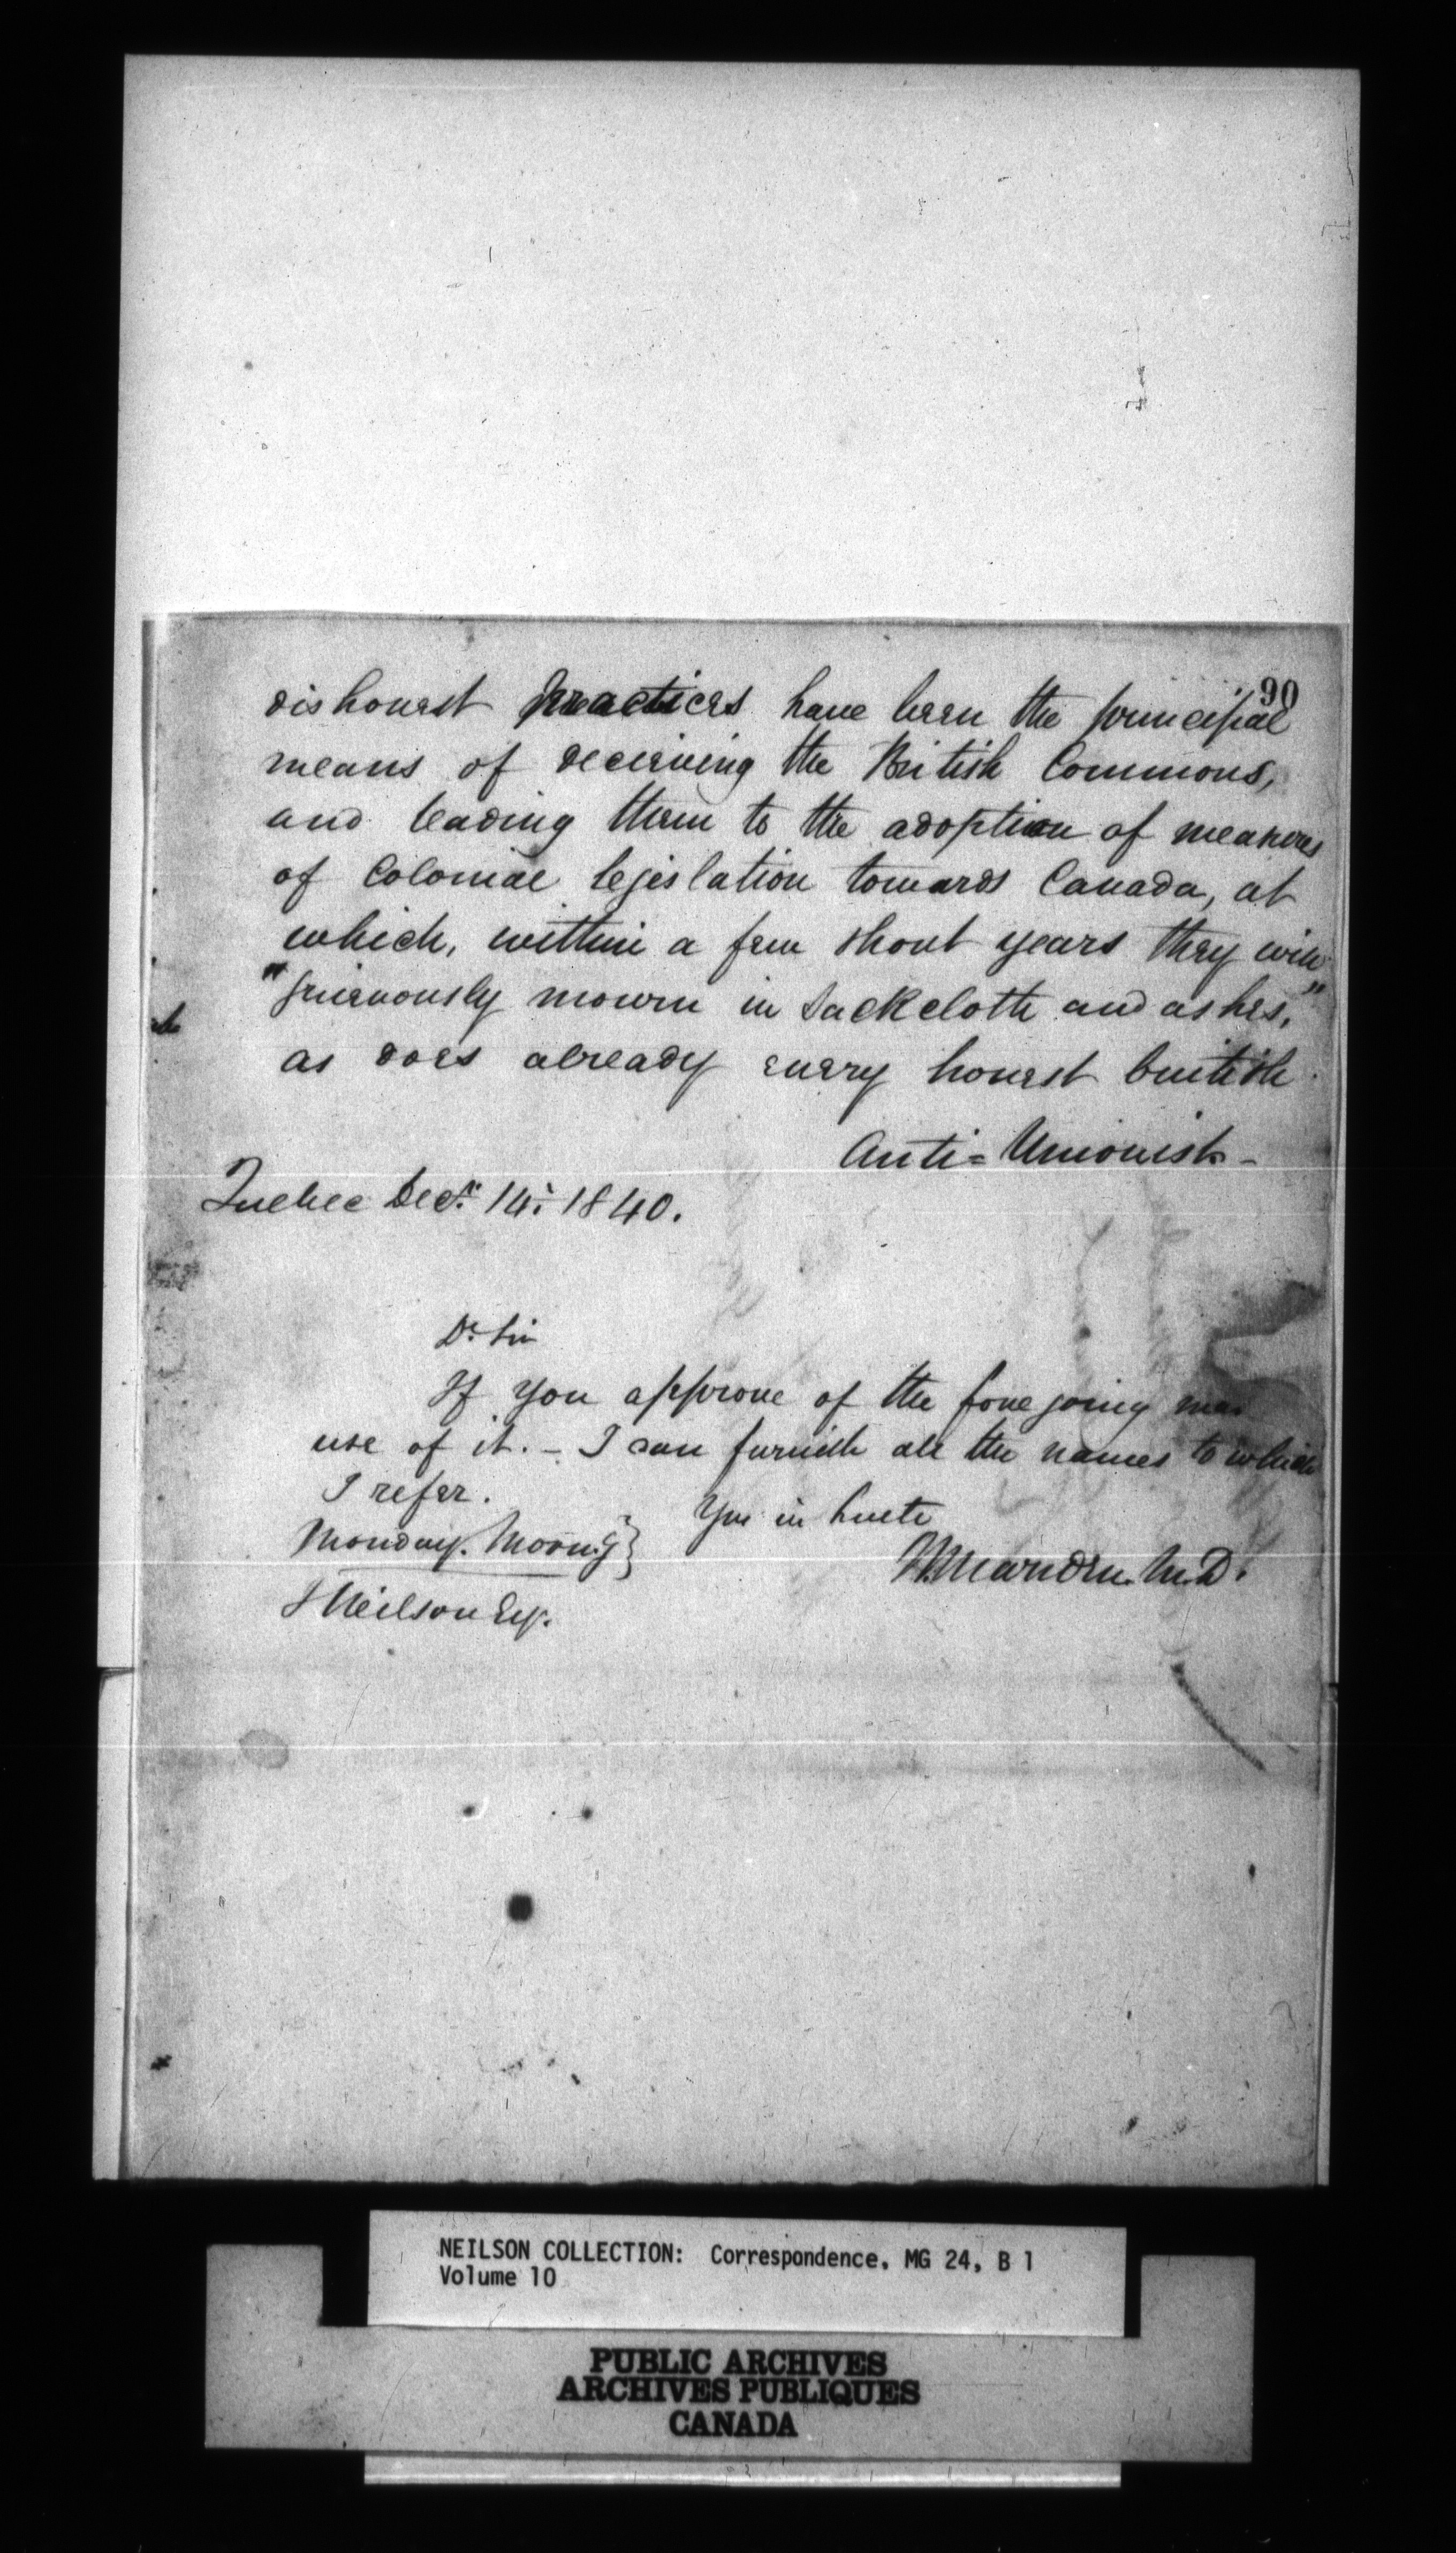 90
dishonest practices have been the principal
means of deceiving the British Commons,
and leading them to the adoption of measures
of Colonial legislation towards Canada, at
which, within a few short years they will
"grievously mourn in sackcloth and ashes,"
as does already every honest british
Anti=Unionist-
Quebec Decr. 14: 1840.
Dr. Sir
If you approve of the foregoing
use of it. - I can furnish all the names to which
I refer.
Yrs in haste
Monday. Morng}
W. Marsden. M.D.
J Neilson Esq.
NEILSON COLLECTION: Correspondence, MG 24, B 1
Volume 10
PUBLIC ARCHIVES
ARCHIVES PUBLIQUES
CANADA